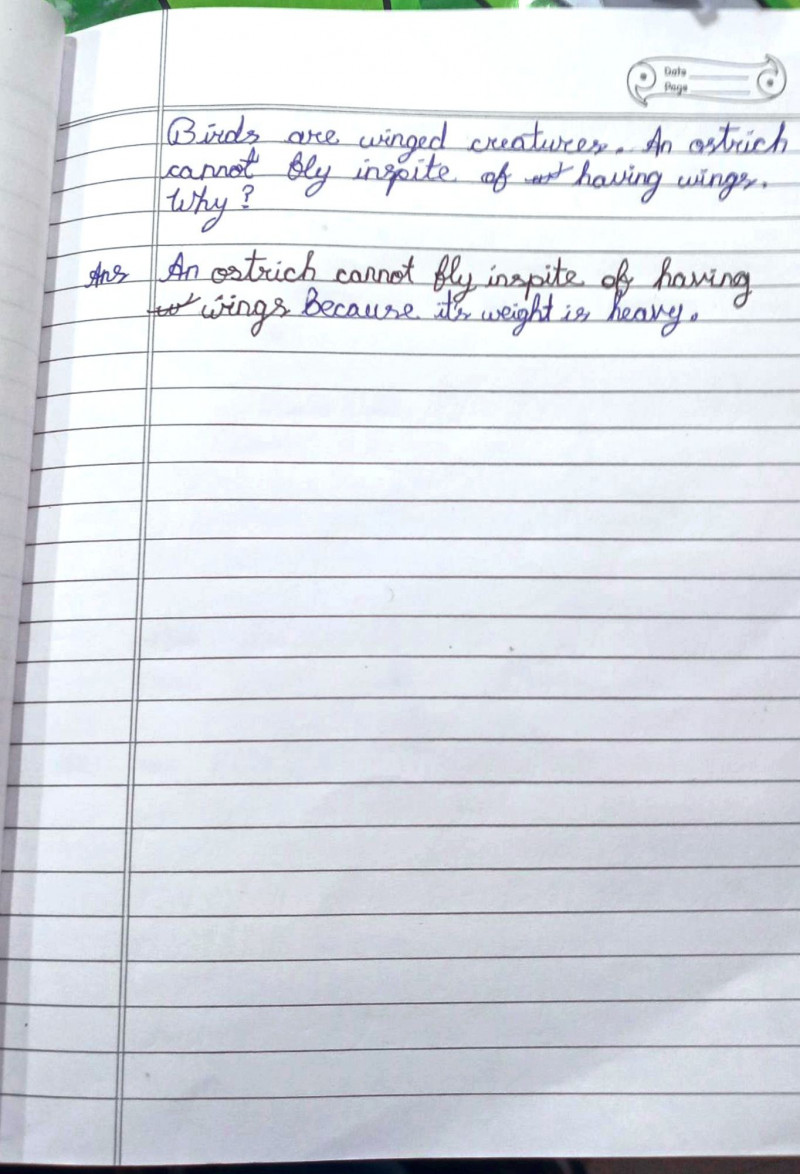 Date
Page
Birds are winged creatures. An ostrich
cannot fly inspite of having wings.
Why?
Ans An ostrich cannot fly inspite of having
wings Because it's weight is heavy.